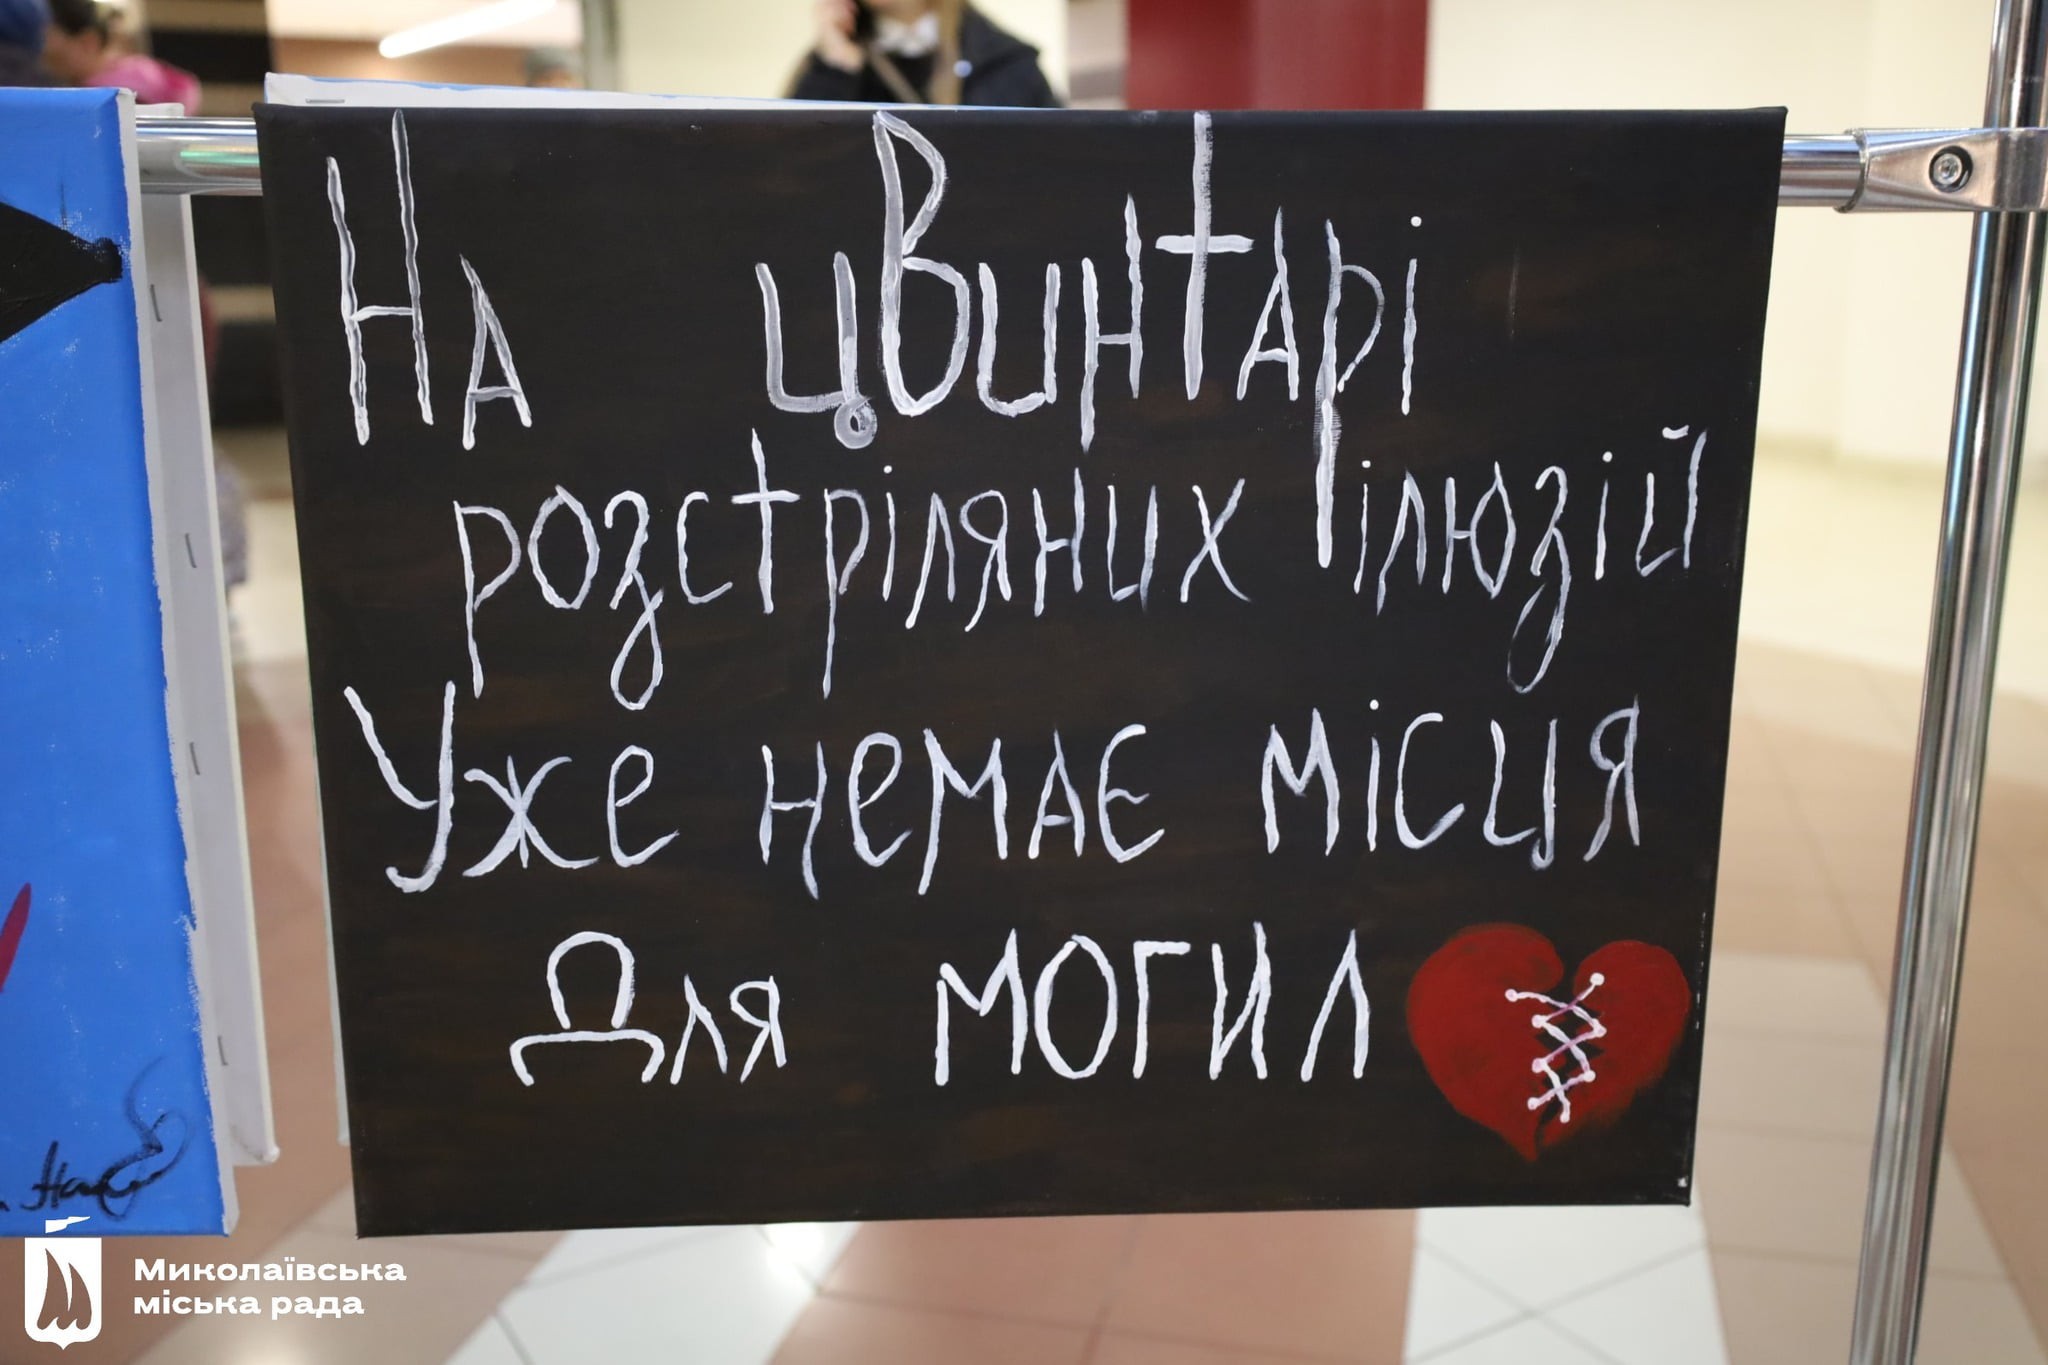 На цвинтарі
розстріляних ілюзій
Уже немає місця
Для могил
Миколаївська
міська рада